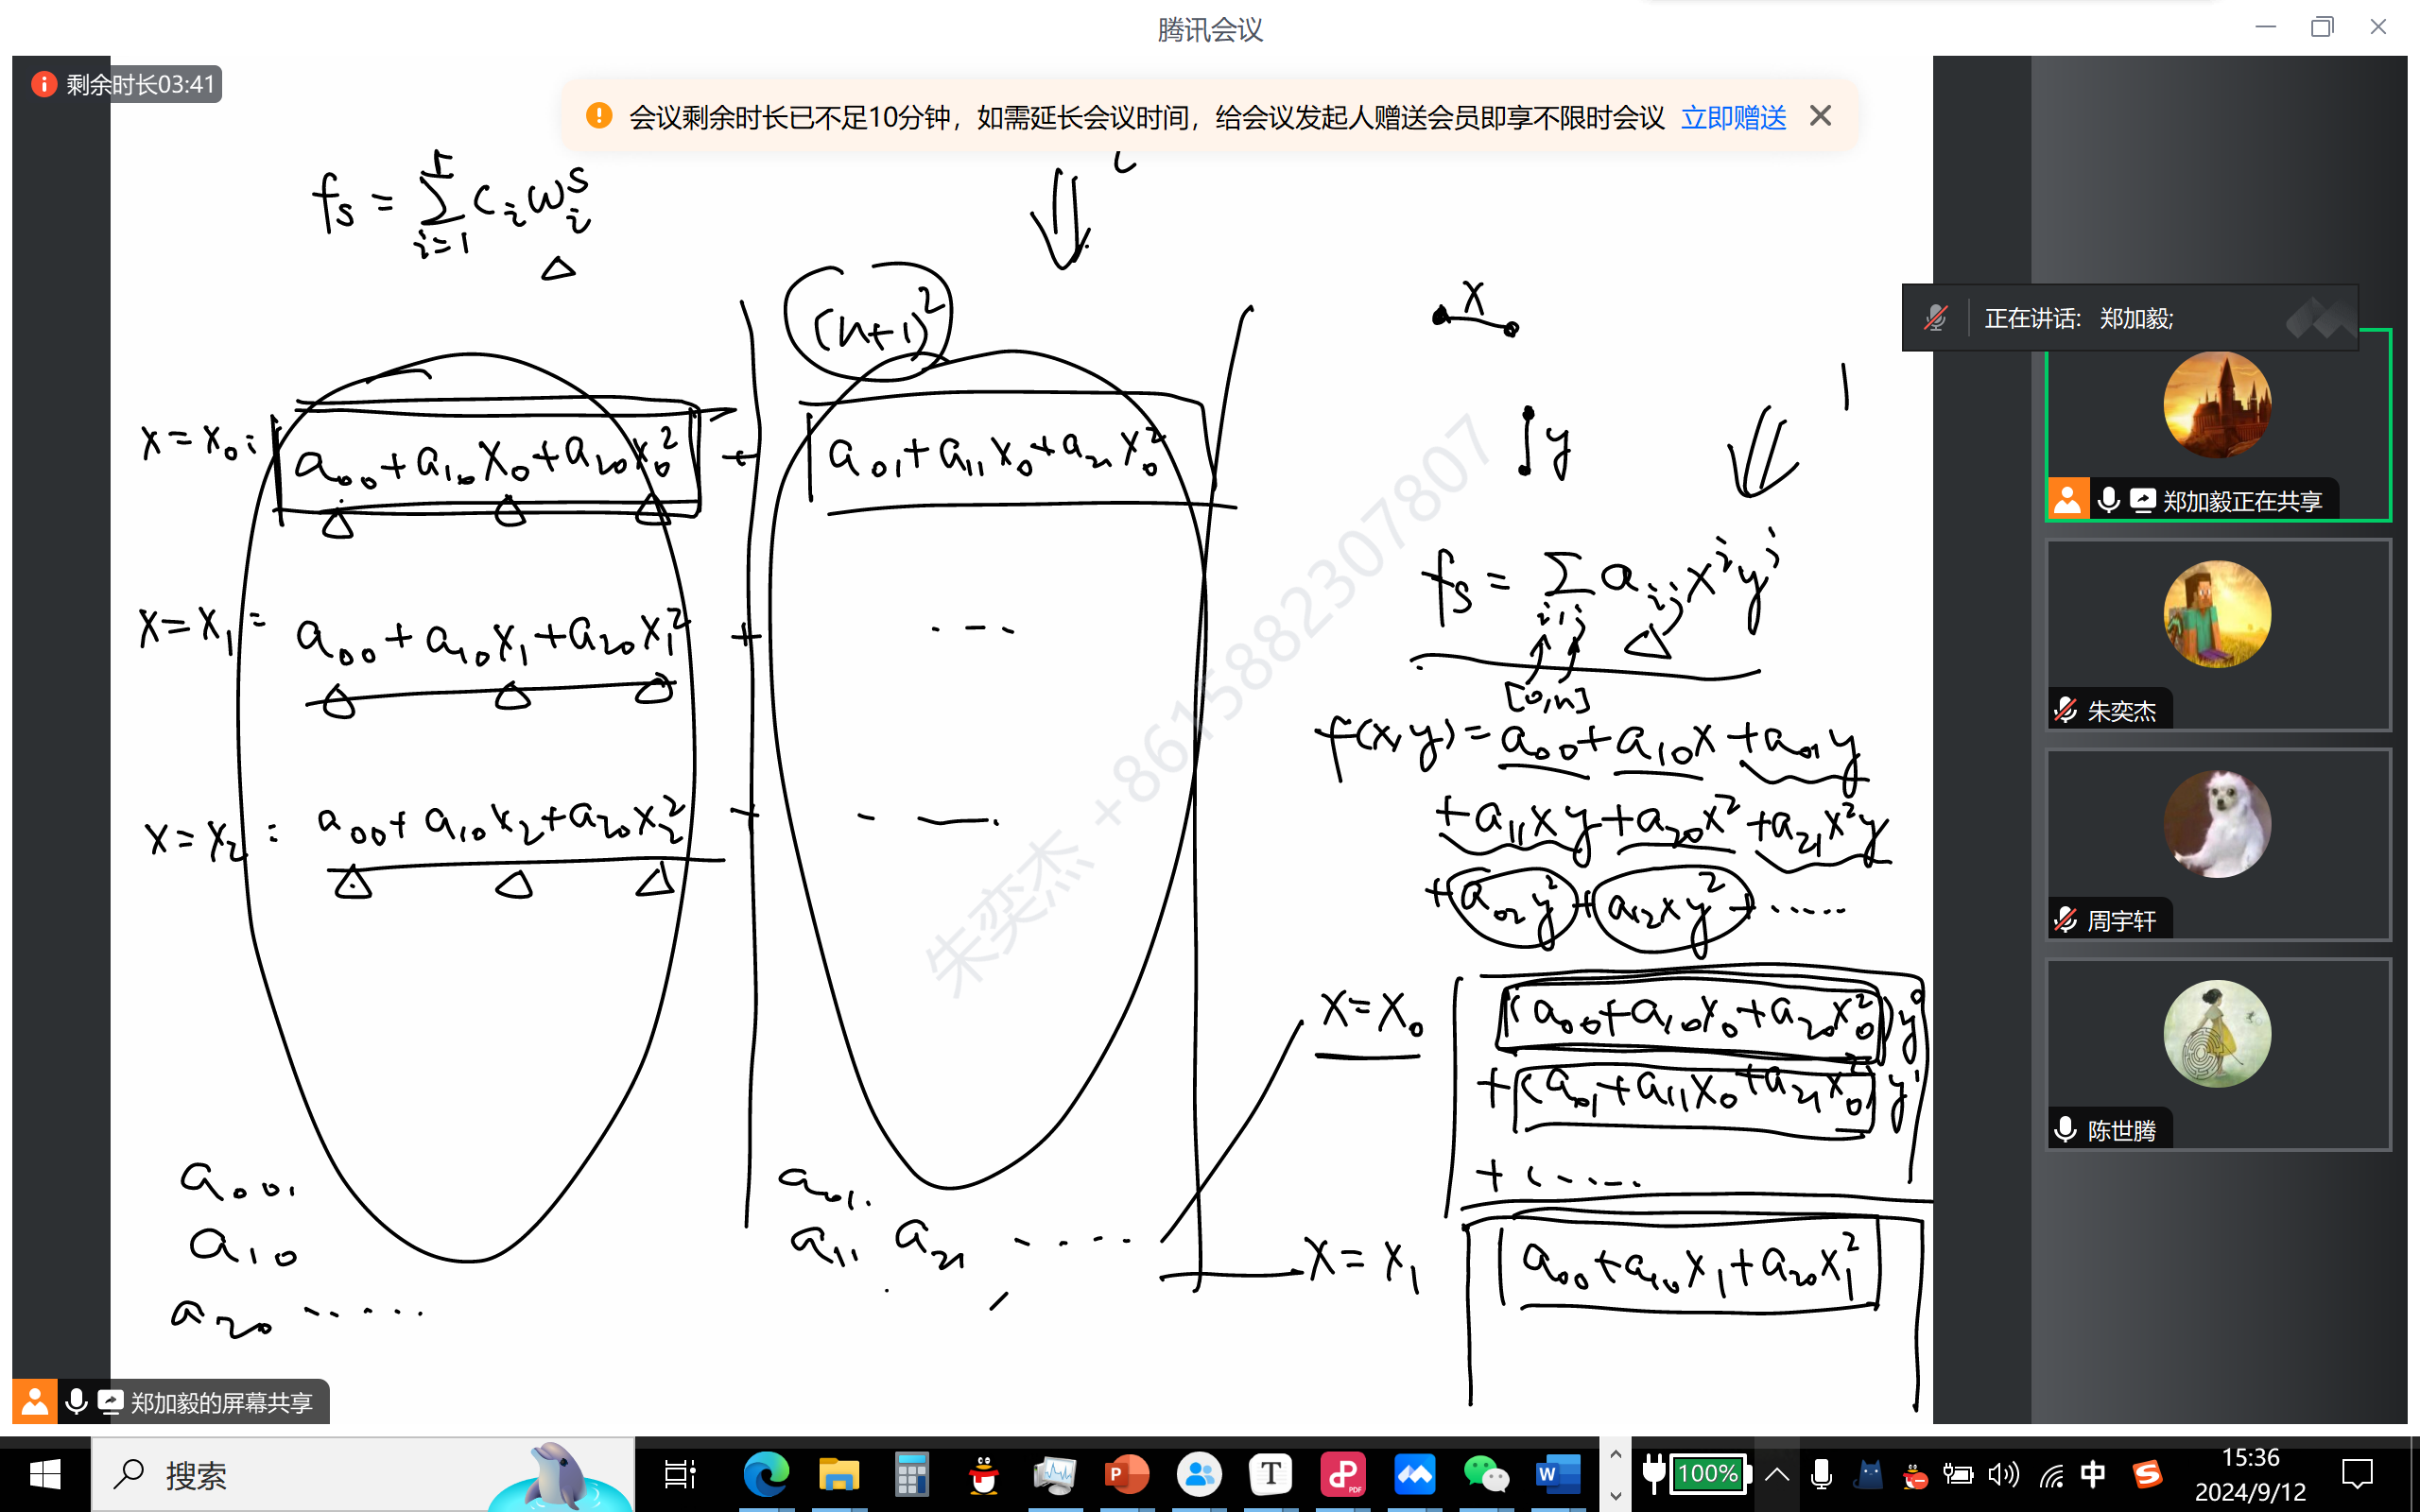 腾讯会议
剩余时长03:41
会议剩余时长已不足10分钟，如需延长会议时间，给会议发起人赠送会员即享不限时会议 立即赠送
f_s = \sum_{i=1}^{r} c_i ω_i^s
△
(n+1)^2
x = x_0: a_{00}+a_{10}x_0+a_{20}x_0^2 + a_{01}+a_{11}x_0+a_{21}x_0^2
△ △ △
x = x_1 = a_{00}+a_{10}x_1+a_{20}x_1^2 + ...
△ △ △
x = x_2 : a_{00}+a_{10}x_2+a_{20}x_2^2 + ...
△ △ △
a_{00},
a_{10}
a_{20} ......
a_{01}.
a_{11} a_{21} .....
x
y
f_s = \sum_{i,j} a_{ij} x^i y^j
△
[0,n]
f(x,y) = a_{00}+a_{10}x+a_{01}y
+a_{11}xy+a_{20}x^2+a_{21}x^2y
+a_{02}y^2+a_{12}xy^2+......
x=x_0 (a_{00}+a_{10}x_0+a_{20}x_0^2)y^0
+(a_{01}+a_{11}x_0+a_{21}x_0^2)y^1
+(.....
x = x_1 a_{00}+a_{10}x_1+a_{20}x_1^2
朱奕杰 +8615882307807
正在讲话: 郑加毅;
郑加毅正在共享
朱奕杰
周宇轩
陈世腾
郑加毅的屏幕共享
搜索
100%
中
15:36
2024/9/12